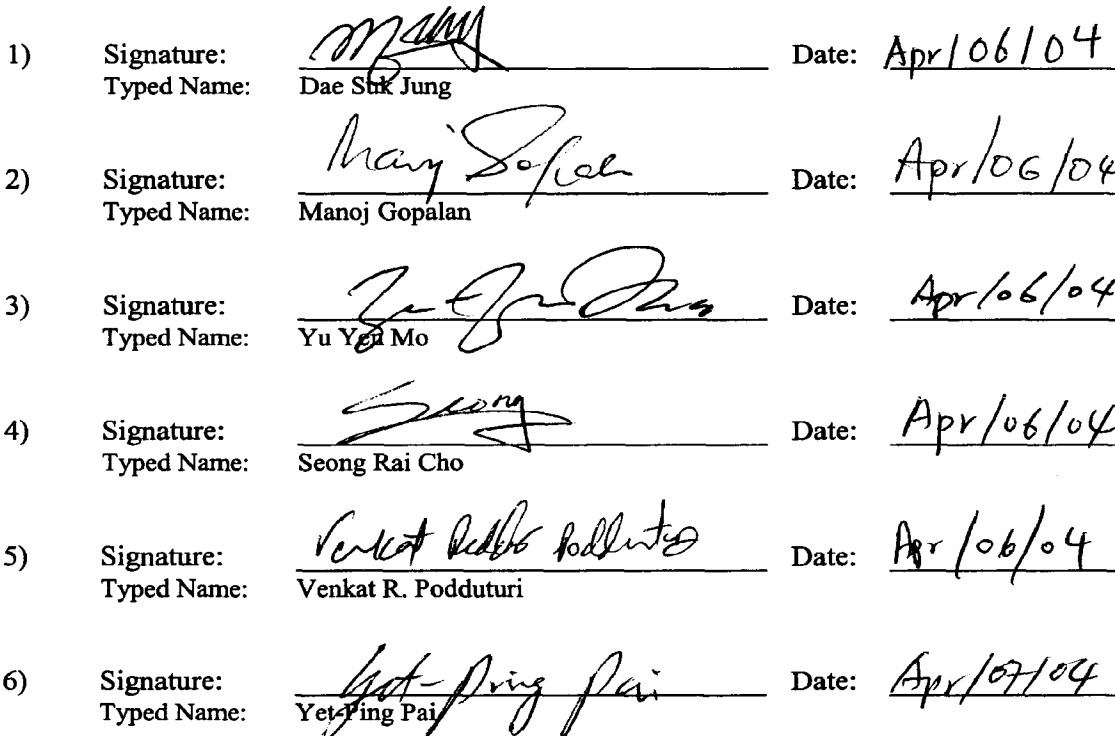 1) Signature: Date: Apr/06/04
Typed Name: Dae Suk Jung
2) Signature: Manoj Gopalan Date: Apr/06/04
Typed Name: Manoj Gopalan
3) Signature: Yu Yen Mo Date: Apr/06/04
Typed Name: Yu Yen Mo
4) Signature: Seong Date: Apr/06/04
Typed Name: Seong Rai Cho
5) Signature: Venkat Reddy Podduturi Date: Apr/06/04
Typed Name: Venkat R. Podduturi
6) Signature: Yet-Ping Pai Date: Apr/07/04
Typed Name: Yet-Ping Pai